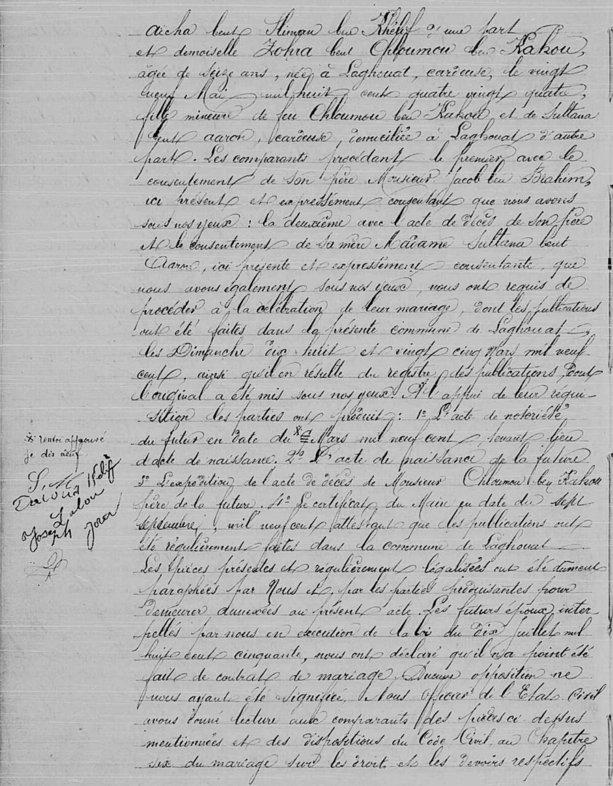 Aicha bent Sliman ben Khelif d'une part
et demoiselle Zohra bent Chloumou ben Kakou,
âgée de seize ans, née à Laghouat, carëuse, le vingt
Mai mil huit cent quatre vingt quatre,
fille mineure de feu Chloumou ben Kakou, et de Sultana
bent Aaron, carëuse, domiciliée à Laghouat d'autre
part. Les comparants procédant le premier avec le
consentement de son père Monsieur Jacob ben Brahim,
ici présent et expressément consentant que nous avons
sous nos yeux : la deuxième avec l'acte de décès de son père
et le consentement de sa mère Madame Sultana bent
Aaron, ici présente et expressément consentante, que
nous avons également sous nos yeux, nous ont requis de
procéder à la célébration de leur mariage, dont les publications
ont été faites dans la présente commune de Laghouat,
les Dimanche dix huit et vingt cinq Mars mil neuf
cent, ainsi qu'il en résulte du registre des publications dont
l'original a été mis sous nos yeux. A l'appui de leur réqui-
sition les parties ont produit : 1° L'acte de notoriété
du futur en date du Mars mil neuf cent, tenant lieu
d'acte de naissance. 2° L'acte de naissance de la future
3° L'expédition de l'acte de décès de Monsieur Chloumou ben Kakou
père de la future. 4° Le certificat du Maire en date du sept
septembre, mil neuf cent attestant que les publications ont
été régulièrement faites dans la commune de Laghouat
Les pièces présentées et régulièrement légalisées ont été dûment
paraphées par Nous et par les parties requisantes pour
demeurer annexées au présent acte. Les futurs époux, inter
pellés par nous en exécution de la loi du dix Juillet mil
huit cent cinquante, nous ont déclaré qu'il n'a point été
fait de contrat de mariage. Aucune opposition ne
nous ayant été signifiée, Nous officier de l'Etat Civil
avons donné lecture aux comparants des pièces ci dessus
mentionnées et des dispositions du Code Civil au Chapitre
six du mariage sur les droit et les devoirs respectifs
renvoi approuvé
je dis neuf
Joseph